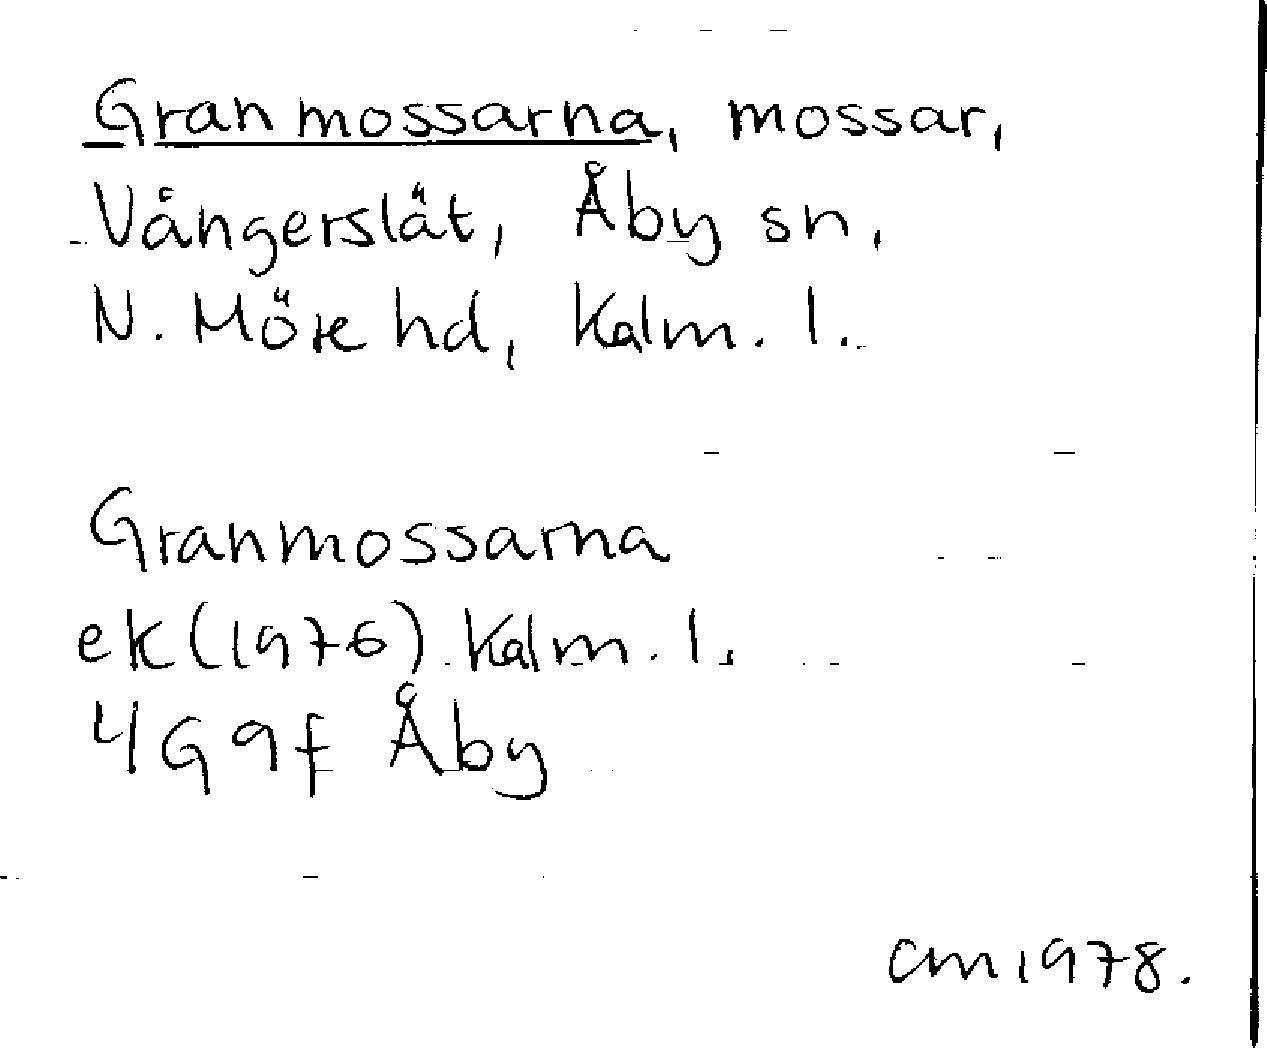 Granmossarna, mossar,
Vångerslät, Åby sn,
N. Möre hd, Kalm. l.
Granmossarna
ek (1976) Kalm. l.
4G 9f Åby
CM 1978.